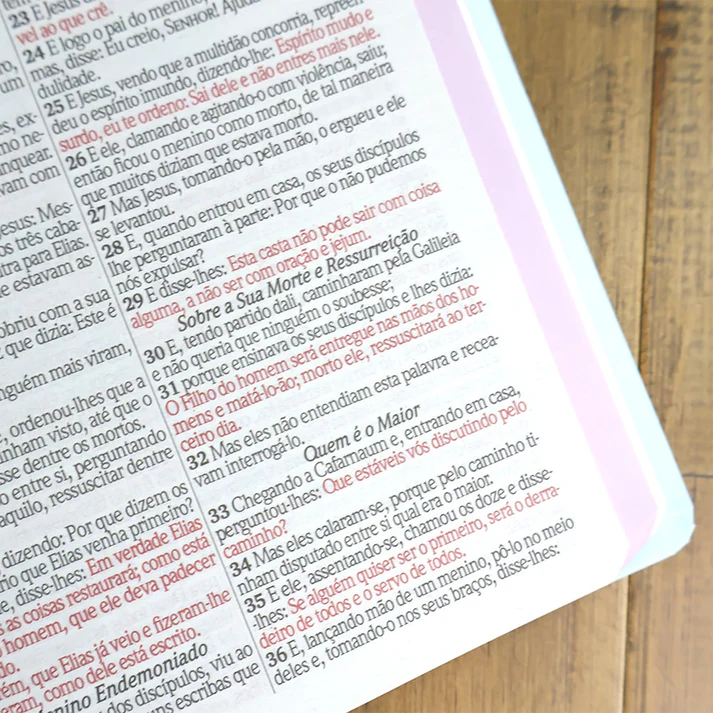 um
es, ex-
mo ne-
nquear.
vam com
esus: Mes-
os três caba-
tra para Elias.
e estavam as-
obriu com a sua
que dizia: Este é
nguém mais viram,
, ordenou-lhes que a
nham visto, até que o
sse dentre os mortos.
o entre si, perguntando
aquilo, ressuscitar dentre
dizendo: Por que dizem os
rio que Elias venha primeiro?
e, disse-lhes: Em verdade Elias
s as coisas restaurará; como está
homem, que ele deva padecer
do.
rém, que Elias já veio e fizeram-lhe
eram, como dele está escrito.
enino Endemoniado
dos discípulos, viu ao
ns escribas que
23 E Jesus
vel ao que crê.
24 E logo o pai do menino,
mas, disse: Eu creio, SENHOR! Ajud
dulidade.
25 E Jesus, vendo que a multidão concorria, repreen
deu o espírito imundo, dizendo-lhe: Espírito mudo e
surdo, eu te ordeno: Sai dele e não entres mais nele.
26 E ele, clamando e agitando-o com violência, saiu;
então ficou o menino como morto, de tal maneira
que muitos diziam que estava morto.
27 Mas Jesus, tomando-o pela mão, o ergueu e ele
se levantou.
28 E, quando entrou em casa, os seus discípulos
lhe perguntaram à parte: Por que o não pudemos
nós expulsar?
29 E disse-lhes: Esta casta não pode sair com coisa
alguma, a não ser com oração e jejum.
Sobre a Sua Morte e Ressurreição
30 E, tendo partido dali, caminharam pela Galileia
e não queria que ninguém o soubesse;
31 porque ensinava os seus discípulos e lhes dizia:
O Filho do homem será entregue nas mãos dos ho-
mens e matá-lo-ão; morto ele, ressuscitará ao ter-
ceiro dia.
32 Mas eles não entendiam esta palavra e recea-
vam interrogá-lo.
Quem é o Maior
33 Chegando a Cafarnaum e, entrando em casa,
perguntou-lhes: Que estáveis vós discutindo pelo
caminho?
34 Mas eles calaram-se, porque pelo caminho ti-
nham disputado entre si qual era o maior.
35 E ele, assentando-se, chamou os doze e disse-
-lhes: Se alguém quiser ser o primeiro, será o derra-
deiro de todos e o servo de todos.
36 E, lançando mão de um menino, pô-lo no meio
deles e, tomando-o nos seus braços, disse-lhes: